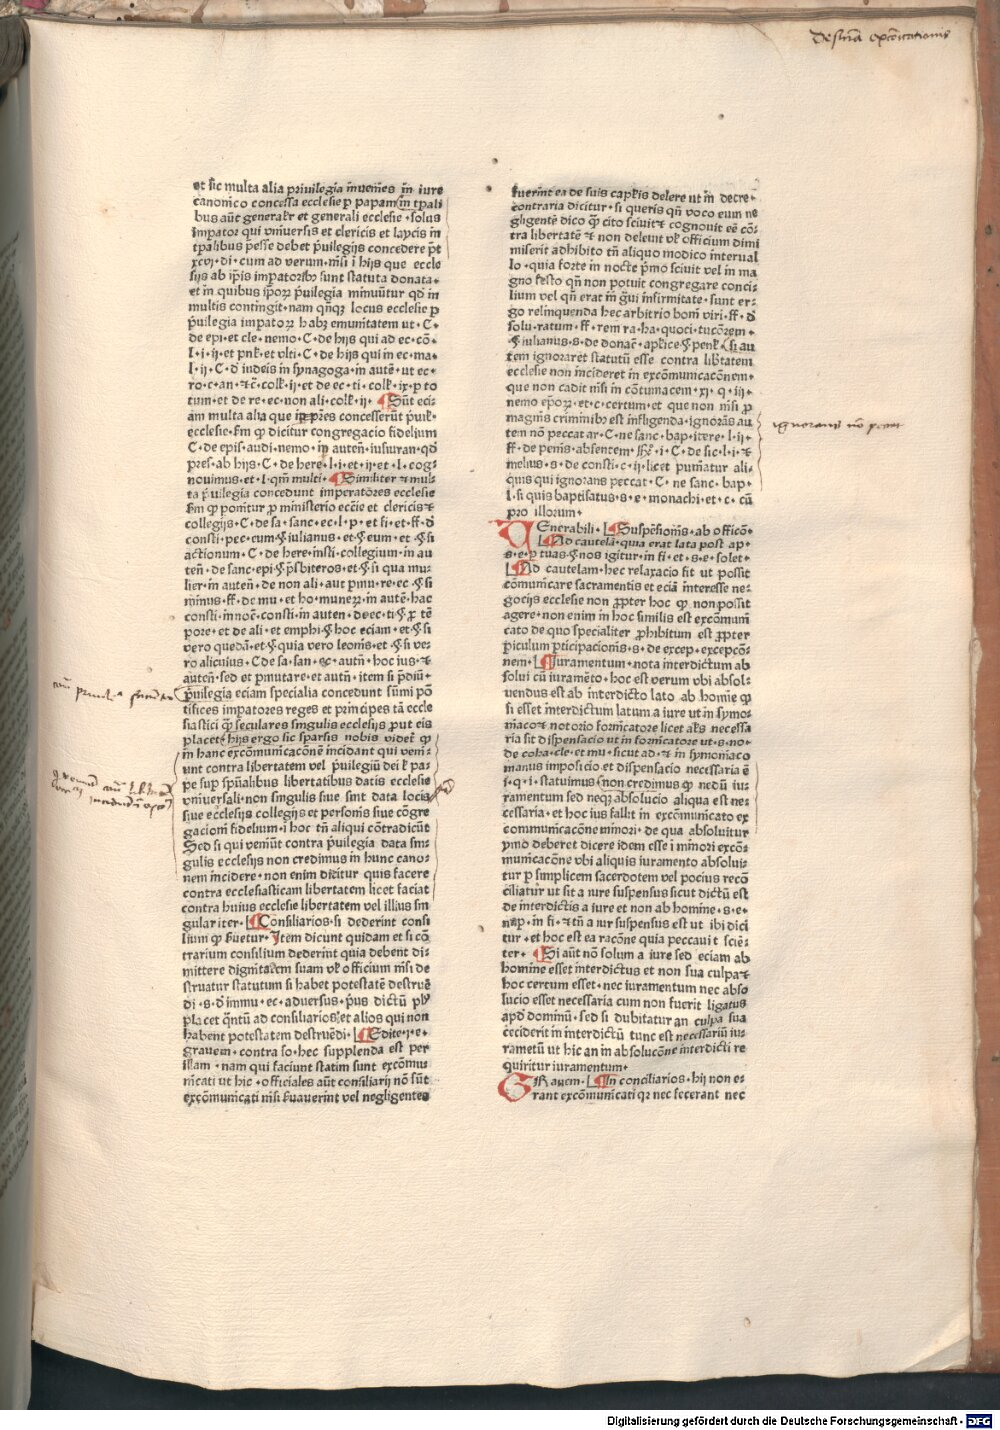 De sn̄ia excōicationis
et sic multa alia priuilegia īnuem̄es ī iure
canonico concessa ecclesie ꝑ papam in tp̄ali
bus aūt generalr̄ et generali ecclesie · solus
impator qui vniuersis et clericis et laycis in
tp̄alibus pesse debet p̄uilegijs concedere p̄t
xcvj · di · cum ad verum · nisi ī hijs que eccle
sijs ab ip̄is impatorib; sunt statuta donata ·
et in quibus ip̄oꝝ p̄uilegia minuūtur qd̓ in
multis contingit · nam qn̄qꝫ locus ecclesie ꝑ
p̄uilegia impatoꝝ habꝫ emunitatem ut · C ·
de epi · et cle · nemo · C · de hijs qui ad ec · cō ·
l · i · ij · et pnl̄t · et vlti · C · de hijs qui in ec · ma ·
l · ij · C · d̓ iudeis in synagoga · in autē · ut ec ·
ro · c · an · ⁊ c̄ · coll̄ · ij · et de ec · ti · coll̄ · ix · p to
tum · et de re · ec · non ali · coll̄ · ij · ¶ Sūt eci ·
am multa alia que ip̄i p̄res concesserūt p̄uil̄ ·
ecclesie · s̄m ꝙ dicitur congregacio fidelium
C · de epis · audi · nemo · in autēn · iusiuran · qd̓
pres · ab hijs · C · de here · l · i · et · ij · et · l · cog ·
nouimus · et · l · qm̄ multi · ¶ Similiter ⁊ mul ·
ta p̄uilegia concedunt imperatores ecclesie
s̄m ꝙ ponit̄ur ꝑ ministerio ecc̄ie et clericis ⁊
collegijs · C · de sa · sanc · ec · l · p · et si · et · ff · d̓
consti · pec · eum · § iulianus · et · § eum · et · § si
actionum · C · de here · insti · collegium · in au
ten̄ · de sanc · epi · § p̄sbiteros · et · § si qua mu ·
lier · in auten̄ · de non ali · aut pmu · re · ec · § si
minus · ff · de mu · et ho · muneꝝ · in autē · hac
consti · innoc̄ · consti · in auten · de ec · ti · § ꝑ tē
pore · et de ali · et emphi · § hoc eciam · et · § si
vero quedā · et · § quia vero leonis · et · § si ve ·
ro alicuius · C de sa · san · ec · autn̄ · hoc ius · ⁊
auten̄ · sed et pmutare · et autn̄ · item si p̄diū ·
p̄uilegia eciam specialia concedunt sūmi pō
tifices impatores reges et principes tā eccle
siastici q̄ꝫ seculares singulis ecclesijs put eis
placet · hijs ergo sic sparsis nobis videt̄ ꝙ
in hanc excōmunicacōnē incidant qui veni ·
unt contra libertatem vel p̄uilegiū dei l̄ pa ·
pe sup sp̄ualibus libertatibus datis ecclesie
vniuersali · non singulis siue sint data locis
siue ecclesijs collegijs et personis siue cōgre
gacioni fidelium · ī hoc tn̄ aliqui cōtradicūt
Sed si qui veniūt contra p̄uilegia data sin ·
gulis ecclesijs non credimus in hunc cano ·
nem incidere · non enim dicitur quis facere
contra ecclesiasticam libertatem licet faciat
contra huius ecclesie libertatem vel illius sin
gulariter · ¶ Consiliarios · si dederint consi
lium ꝙ suetur · Item dicunt quidam et si cō
trarium consilium dederint quia debent di ·
mittere dignitatem suam vl̄ officium nisi de
struatur statutum si habet potestatē destruē
di · s · d̓ immu · ec · aduersus · p̄us dictū pl̄us
placet q̄ntū ad consiliarios et alios qui non
habent potestatem destruēdi · ¶ Edite · i · e ·
grauem · contra so · hec supplenda est per
illam · nam qui faciunt statim sunt excōmu ·
nicati ut hic · officiales aūt consiliarij nō sūt
excōmunicati nisi suauerint vel negligentes
fuerint ea de suis caplis delere ut in decre ·
contraria dicitur · si queris qn̄ voco eum ne
gligente dico ꝙ cito sciuit ⁊ cognouit eē cō ·
tra libertatē ⁊ non deleuit vl̄ officium dimi
miserit adhibito tn̄ aliquo modico interual
lo · quia forte in nocte p̄mo sciuit vel in ma
gno festo qn̄ non potuit congregare conci ·
lium vel qn̄ erat in g̓ui infirmitate · sunt er ·
go relinquenda hec arbitrio boni viri · ff · d̓
solu · ratum · ff · rem ra · ha · quoci · tucōrem ·
§ iulianus · s · de donac̄ · aplice · § penl̄ · si au
tem ignoraret statutū esse contra lib̄tatem
ecclesie non incideret in excōmunicacōnem ·
que non cadit nisi in cōtumacem · xj · q · iij ·
nemo ep̄oꝝ · et · c · certum · et que non nisi ꝓ
magnis criminib; est infligenda · ignorās au
tem nō peccat ar · C · ne sanc · bap · itere · l · ij ·
ff · de penis · absentem · ff · i · C · de sic · l · i · ⁊
melius · s · de consti · c · ij · licet puniatur ali ·
quis qui ignorans peccat · C · ne sanc · bap ·
l · si quis baptisatus · s · e · monachi · et · c · cū
pro illorum ·
VEnerabili · ¶ Suspēsionis · ab officō ·
¶ Ad cautelā · quia erat lata post ap ·
s · e · ꝑ tuas · § nos igitur · in fi · et · s · e · solet ·
¶ Ad cautelam · hec relaxacio fit ut possit
cōmunicare sacramentis et eciā interesse ne ·
gocijs ecclesie non ꝓpter hoc ꝙ non possit
agere · non enim in hoc similis est excōmuni
cato de quo specialiter ꝓhibitum est ꝓpter
periculum pticipacionis · s · de excep · excepcō ·
nem · ¶ Iuramentum · nota interdictum ab
solui cū iuramēto · hoc est verum vbi absol ·
uendus est ab interdicto lato ab homīe ꝙ
si esset interdictum latum a iure ut in symo ·
niaco ⁊ notorio fornicatore licet al̄s necessa
ria sit dispensacio ut in fornicatore ut · s · no ·
de coha · cle · et mu · sicut ad · ⁊ in symoniaco
manus imposicio et dispensacio necessaria ē
i · q · i · statuimus non credimus ꝙ nedū iu ·
ramentum sed neqꝫ absolucio aliqua est ne ·
cessaria · et hoc ius fallit in excōmunicato ex
communicacōne minori · de qua absoluitur
ymo deberet dicere idem esse ī minori excō ·
municacōne vbi aliquis iuramento absolui ·
tur ꝑ simplicem sacerdotem vel pocius recō
ciliatur ut sit a iure suspensus sicut dictū est
de interdictis a iure et non ab homine · s · e ·
nup̄ · in fi · ⁊ tn̄ a iur suspensus est ut ibi dici
tur · et hoc est ea racōne quia peccauit sciē ·
ter · ¶ Si aūt nō solum a iure sed eciam ab
homine esset interdictus et non sua culpa ⁊
hoc certum esset · nec iuramentum nec abso
lucio esset necessaria cum non fuerit ligatus
apd̓ dominū · sed si dubitatur an culpa sua
ceciderit in interdictū tunc est necessariū iu ·
rametū ut hic an in absolucōne interdicti re
quiritur iuramentum ·
GRauem · ¶ In conciliarios · hij non e ·
rant excōmunicati qꝛ nec fecerant nec
ignorans nō peccat
Digitalisierung gefördert durch die Deutsche Forschungsgemeinschaft - DFG